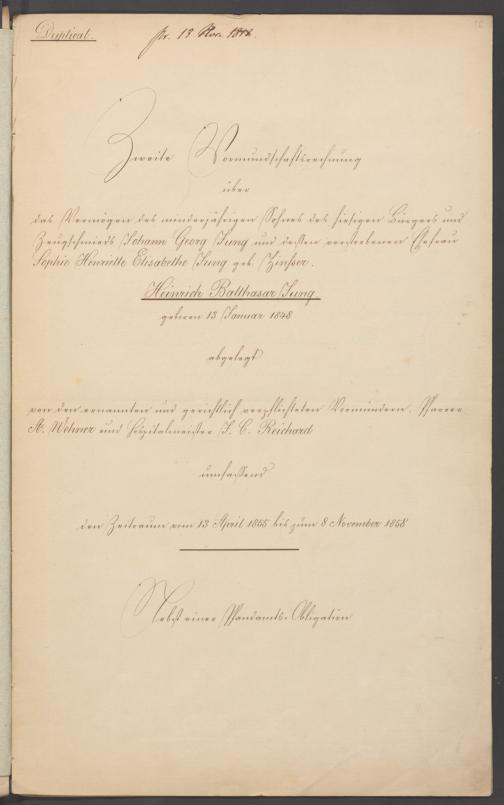 Duplicat.
pr. 13 Nov.
Zweite Vormundschaftsrechnung
über
das Vermögen des minderjährigen Sohnes des hiesigen Bürgers und
Zeugschmieds Johann Georg Jung und dessen verstorbenen Ehefrau
Sophie Henriette Elisabethe Jung geb. Zinsser.
Heinrich Balthasar Jung
geboren 13 Januar 1848
abgelegt
von den ernannten und gerichtlich verpflichteten Vormündern. Pfarrer
A. Wehner und Hospitalmeister J. C. Reichard
umfassend
den Zeitraum vom 13 April 1865 bis zum 8 November 1868
Nebst einer Pfandamts-Obligation